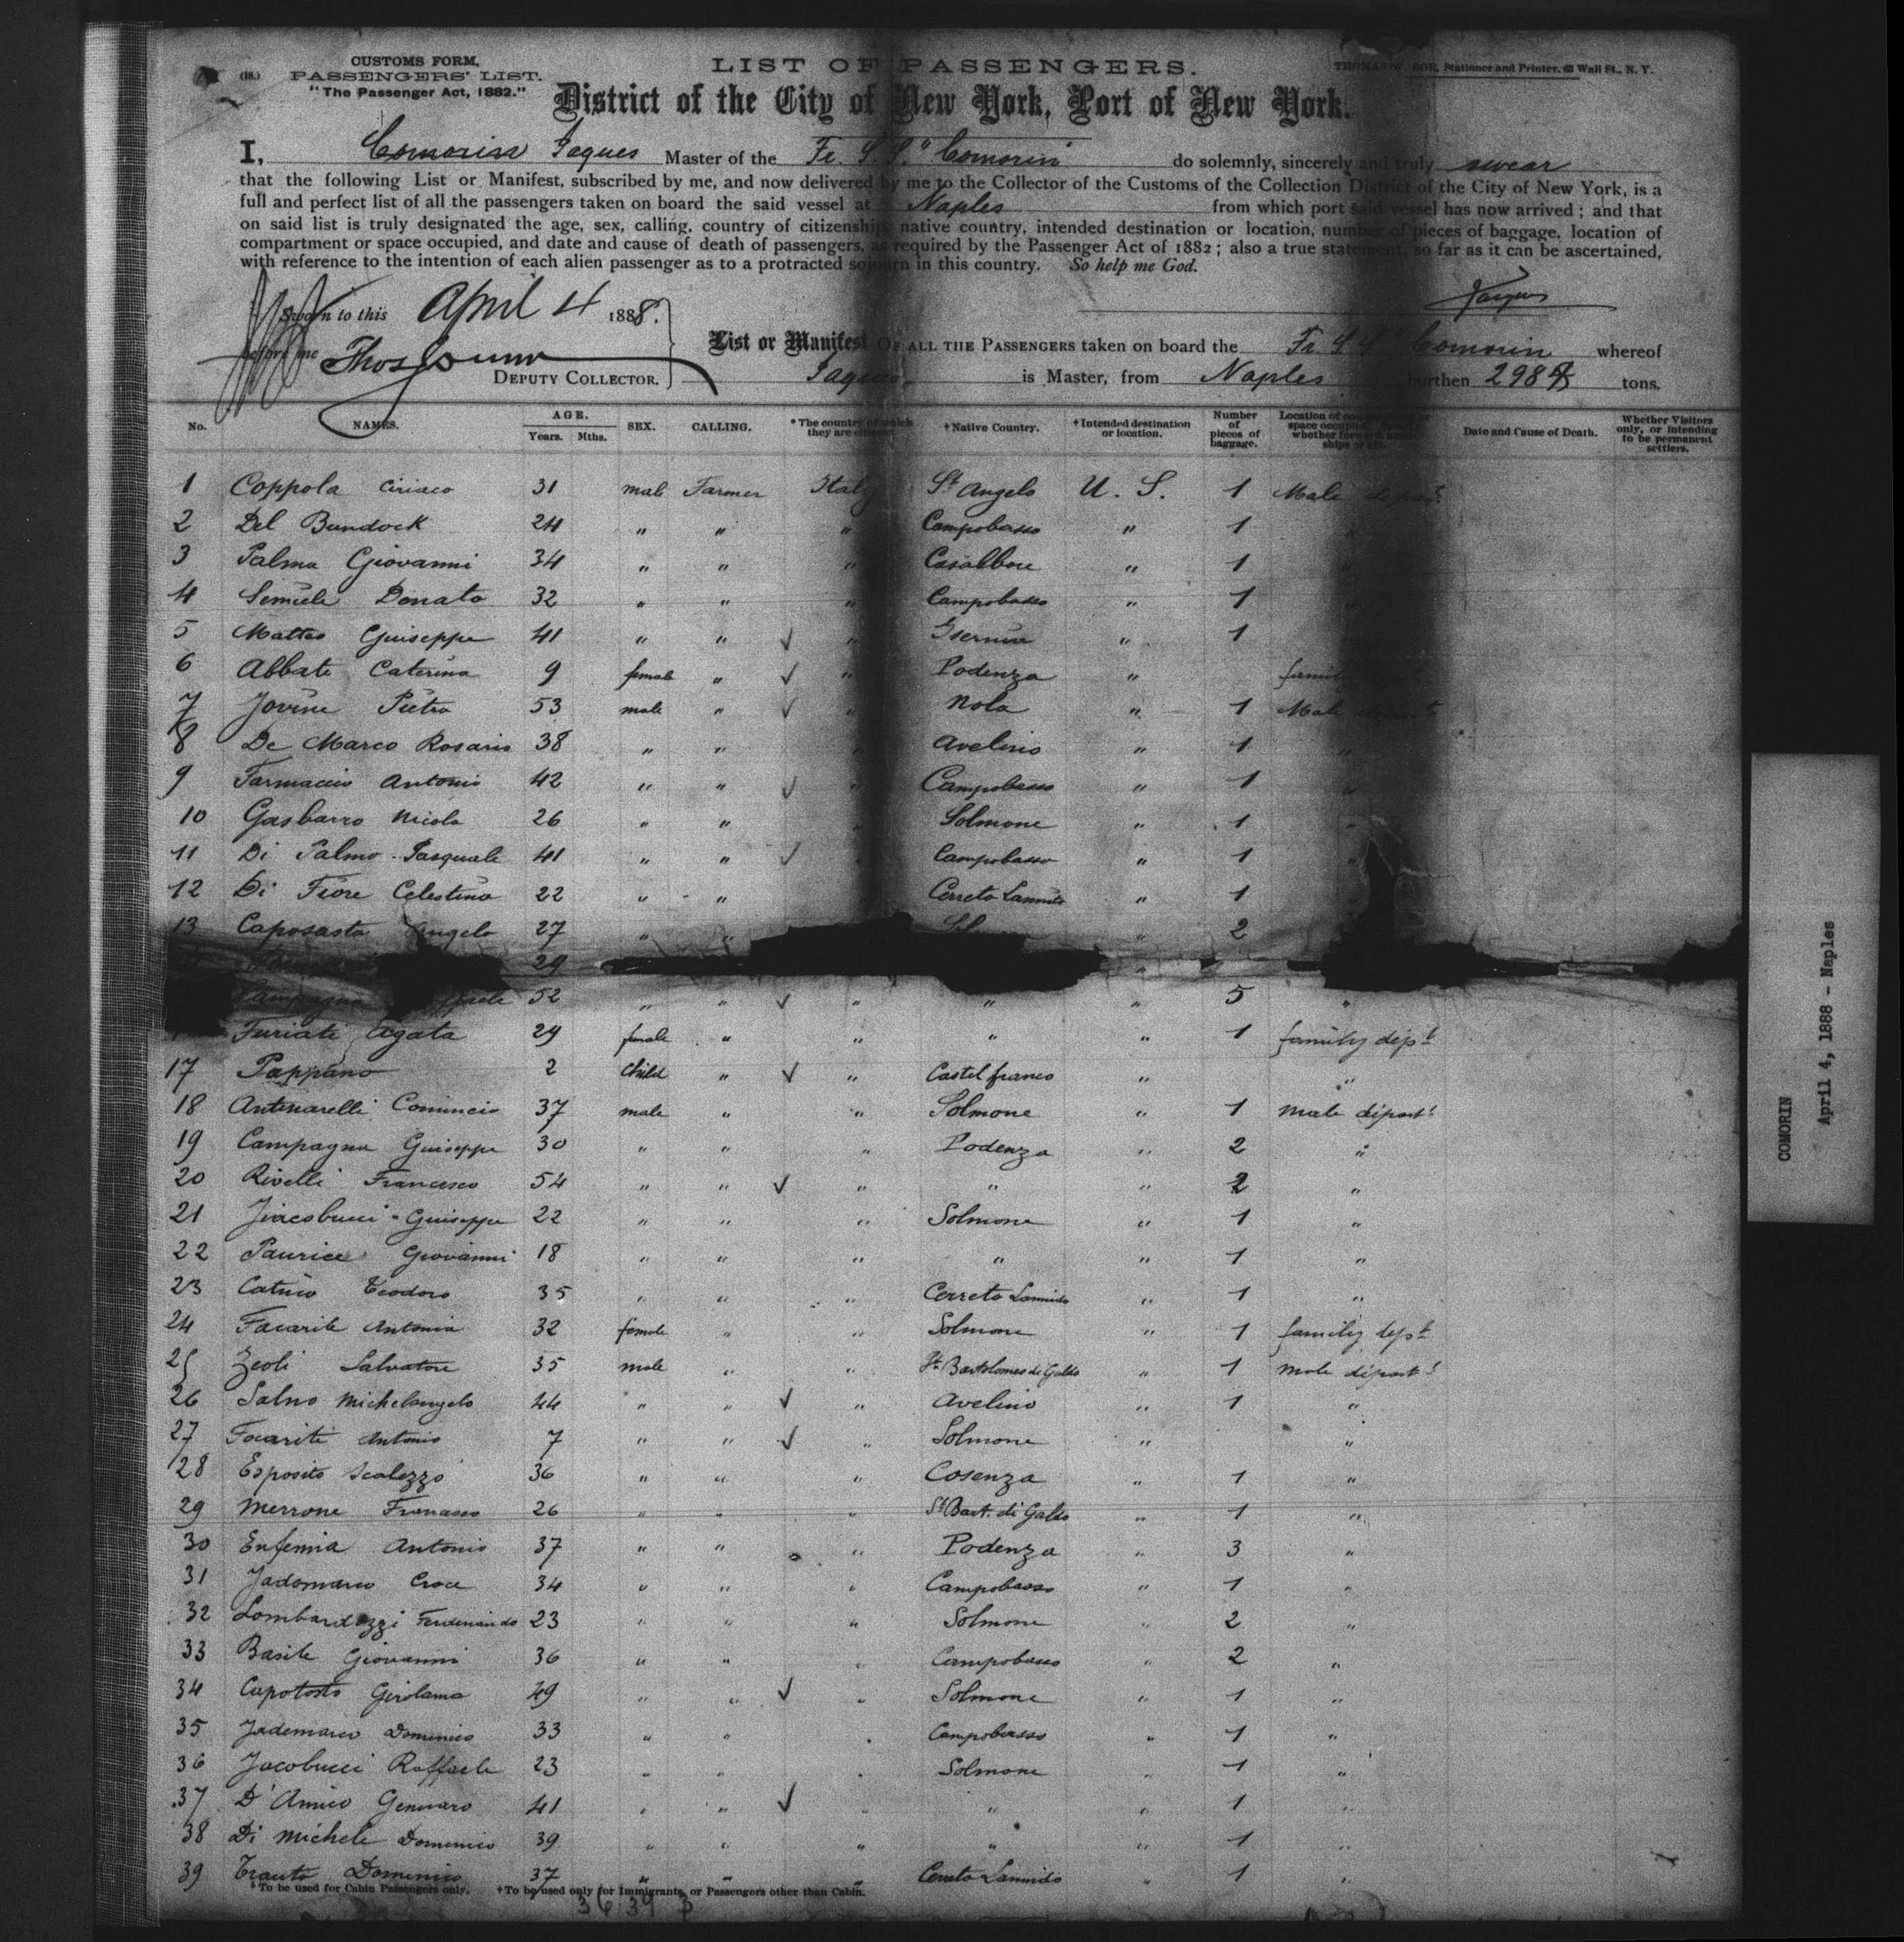 (18.)
CUSTOMS FORM,
PASSENGERS' LIST.
"The Passenger Act, 1882."
LIST OF PASSENGERS.
Stationer and Printer, Wall St., N. Y.
District of the City of New York, Port of New York.
I, Comorin Jaques Master of the Fr. S.S. "Comorin" do solemnly, sincerely and truly swear
that the following List or Manifest, subscribed by me, and now delivered by me to the Collector of the Customs of the Collection District of the City of New York, is a
full and perfect list of all the passengers taken on board the said vessel at Naples from which port said vessel has now arrived; and that
on said list is truly designated the age, sex, calling, country of citizenship, native country, intended destination or location, number of pieces of baggage, location of
compartment or space occupied, and date and cause of death of passengers, as required by the Passenger Act of 1882; also a true statement, so far as it can be ascertained,
with reference to the intention of each alien passenger as to a protracted sojourn in this country. So help me God.
Jaques
Sworn to this April 4 1888.
before me Thos
DEPUTY COLLECTOR.
List or Manifest OF ALL THE PASSENGERS taken on board the Fr. S S Comorin whereof
Jaques is Master, from Naples burthen 298 tons.
No. NAMES. AGE. Years. Mths. SEX. CALLING. *The country of which they are citizens. †Native Country. †Intended destination or location. Number of pieces of baggage. Location of space occupied whether ships or Date and Cause of Death. Whether Visitors only, or intending to be permanent settlers.
1 Coppola Ciriaco 31 male Farmer Italy St Angelo U. S. 1 Male depart
2 Del Bundock 24 " " " Campobasso " 1 "
3 Palma Giovanni 34 " " " Casalbore " 1 "
4 Semiele Donato 32 " " " Campobasso " 1 "
5 Matteo Giuseppe 41 " " ✓ " Isernia " 1
6 Abbate Caterina 9 female " ✓ " Podenza " family
7 Jovine Pietro 53 male " ✓ " Nola " 1 Male
8 De Marco Rosario 38 " " " Avelino " 1 "
9 Farmaccio Antonio 42 " " ✓ " Campobasso " 1 "
10 Gasbarro Nicola 26 " " " Solmone " 1 "
11 Di Palmo Pasquale 41 " " ✓ " Campobasso " 1 "
12 Di Fiore Celestino 22 " " Cerreto Sannito " 1
13 Caposasta Angelo 27 " " " 2
29 "
Campagna 52 " " ✓ " " " 5 "
Furiati Agata 29 female " " " " 1 family dept
17 Pappano 2 child " ✓ " Castelfranco " "
18 Antenarelli Comincio 37 male " " Solmone " 1 male depart
19 Campagna Giuseppe 30 " " " Podenza " 2 "
20 Rivelli Francesco 54 " " ✓ " " " 2 "
21 Jiacobucci - Giuseppe 22 " " " Solmone " 1 "
22 Paurice Giovanni 18 " " " " " 1 "
23 Catino Teodoro 35 " " " Cerreto Sannido " 1 "
24 Facarile Antonia 32 female " " Solmone " 1 family dept
25 Zeoli Salvatore 35 male " " St Bartolomeo di Galdo " 1 male depart
26 Salno Michelangelo 44 " " ✓ " Avelino " 1 "
27 Focariti Antonio 7 " " ✓ " Solmone " "
28 Esposito Scalezzo 36 " " " Cosenza " 1 "
29 Merrone Francesco 26 " " " St Bart. di Galdo " 1 "
30 Enfemia Antonio 37 " " " Podenza " 3 "
31 Jadomarco Croce 34 " " " Campobasso " 1 "
32 Lombardozzi Ferdinando 23 " " " Solmone " 2 "
33 Basile Giovanni 36 " " " Campobasso " 2 "
34 Capotosto Girolamo 49 " " ✓ " Solmone " 1 "
35 Jademarco Domenico 33 " " " Campobasso " 1 "
36 Jacobucci Raffaele 23 " " " Solmone " 1 "
37 D'Amico Gennaro 41 " " ✓ " " " 1 "
38 Di Michele Domenico 39 " " " " " 1 "
39 Trauto Domenico 37 " " " Cerreto Sannido " 1 "
*To be used for Cabin Passengers only. †To be used only for Immigrants, or Passengers other than Cabin.
36 39
COMORIN
April 4, 1888 - Naples